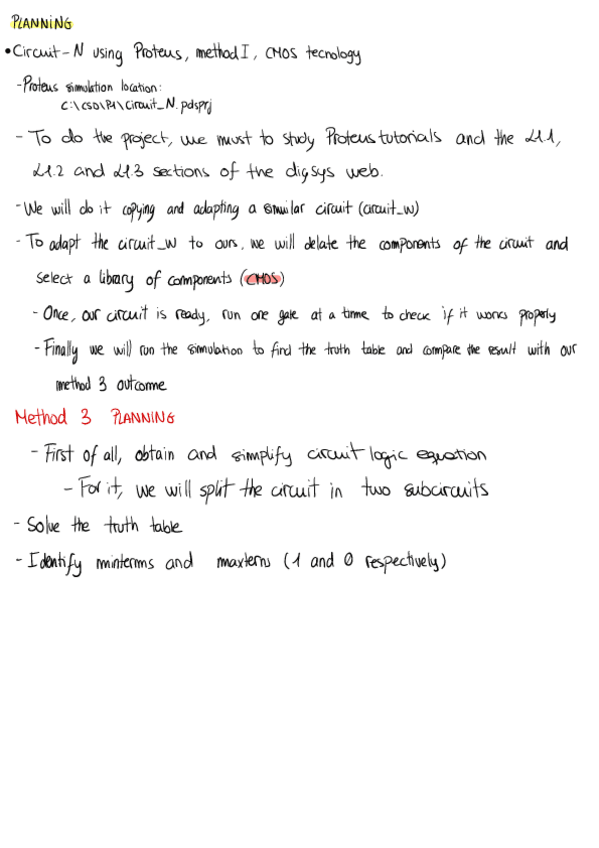 PLANNING
• Circuit-N using Proteus, method I, CMOS tecnology
- Proteus simulation location:
C:\CSD\P1\Circuit_N.pdsprj
- To do the project, we must to study Proteus tutorials and the L1.1,
L1.2 and L1.3 sections of the digsys web.
- We will do it copying and adapting a similar circuit (circuit_w)
- To adapt the circuit_w to ours, we will delate the components of the circuit and
select a library of components (CMOS)
- Once, our circuit is ready, run one gate at a time to check if it works properly
- Finally we will run the simulation to find the truth table and compare the result with our
method 3 outcome
Method 3 PLANNING
- First of all, obtain and simplify circuit logic equation
- For it, we will split the circuit in two subcircuits
- Solve the truth table
- Identify minterms and maxterns (1 and 0 respectively)